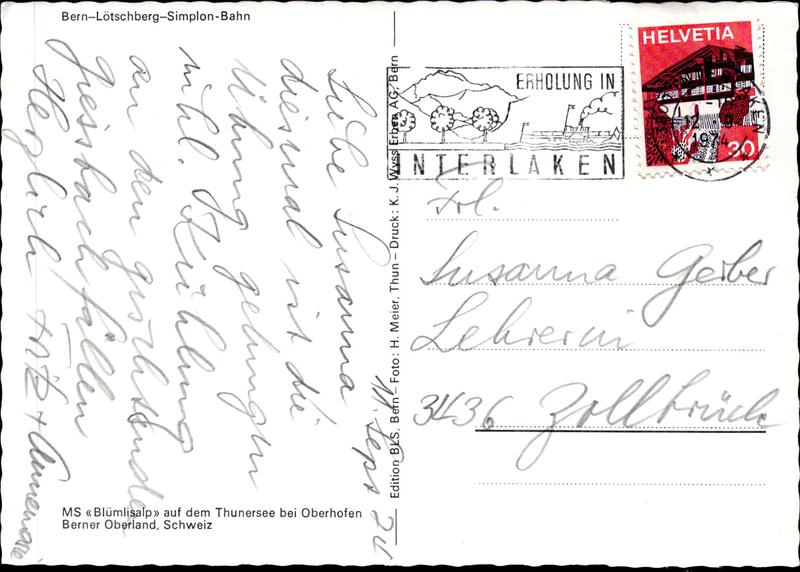 Bern–Lötschberg–Simplon-Bahn
11. Sept 74
Liebe Susanna
diesmal ist die
Übung gelungen
inkl. Kühlung
an den
Giessbachfällen
Herzlich Fritz + Annemarie
MS «Blümlisalp» auf dem Thunersee bei Oberhofen
Berner Oberland, Schweiz
Edition BLS, Bern – Foto: H. Meier, Thun – Druck: K. J. Wyss Erben AG, Bern
ERHOLUNG IN
INTERLAKEN
HELVETIA
30
12.-9.
1974
Frl.
Susanna Gerber
Lehrerin
3436 Zollbrück